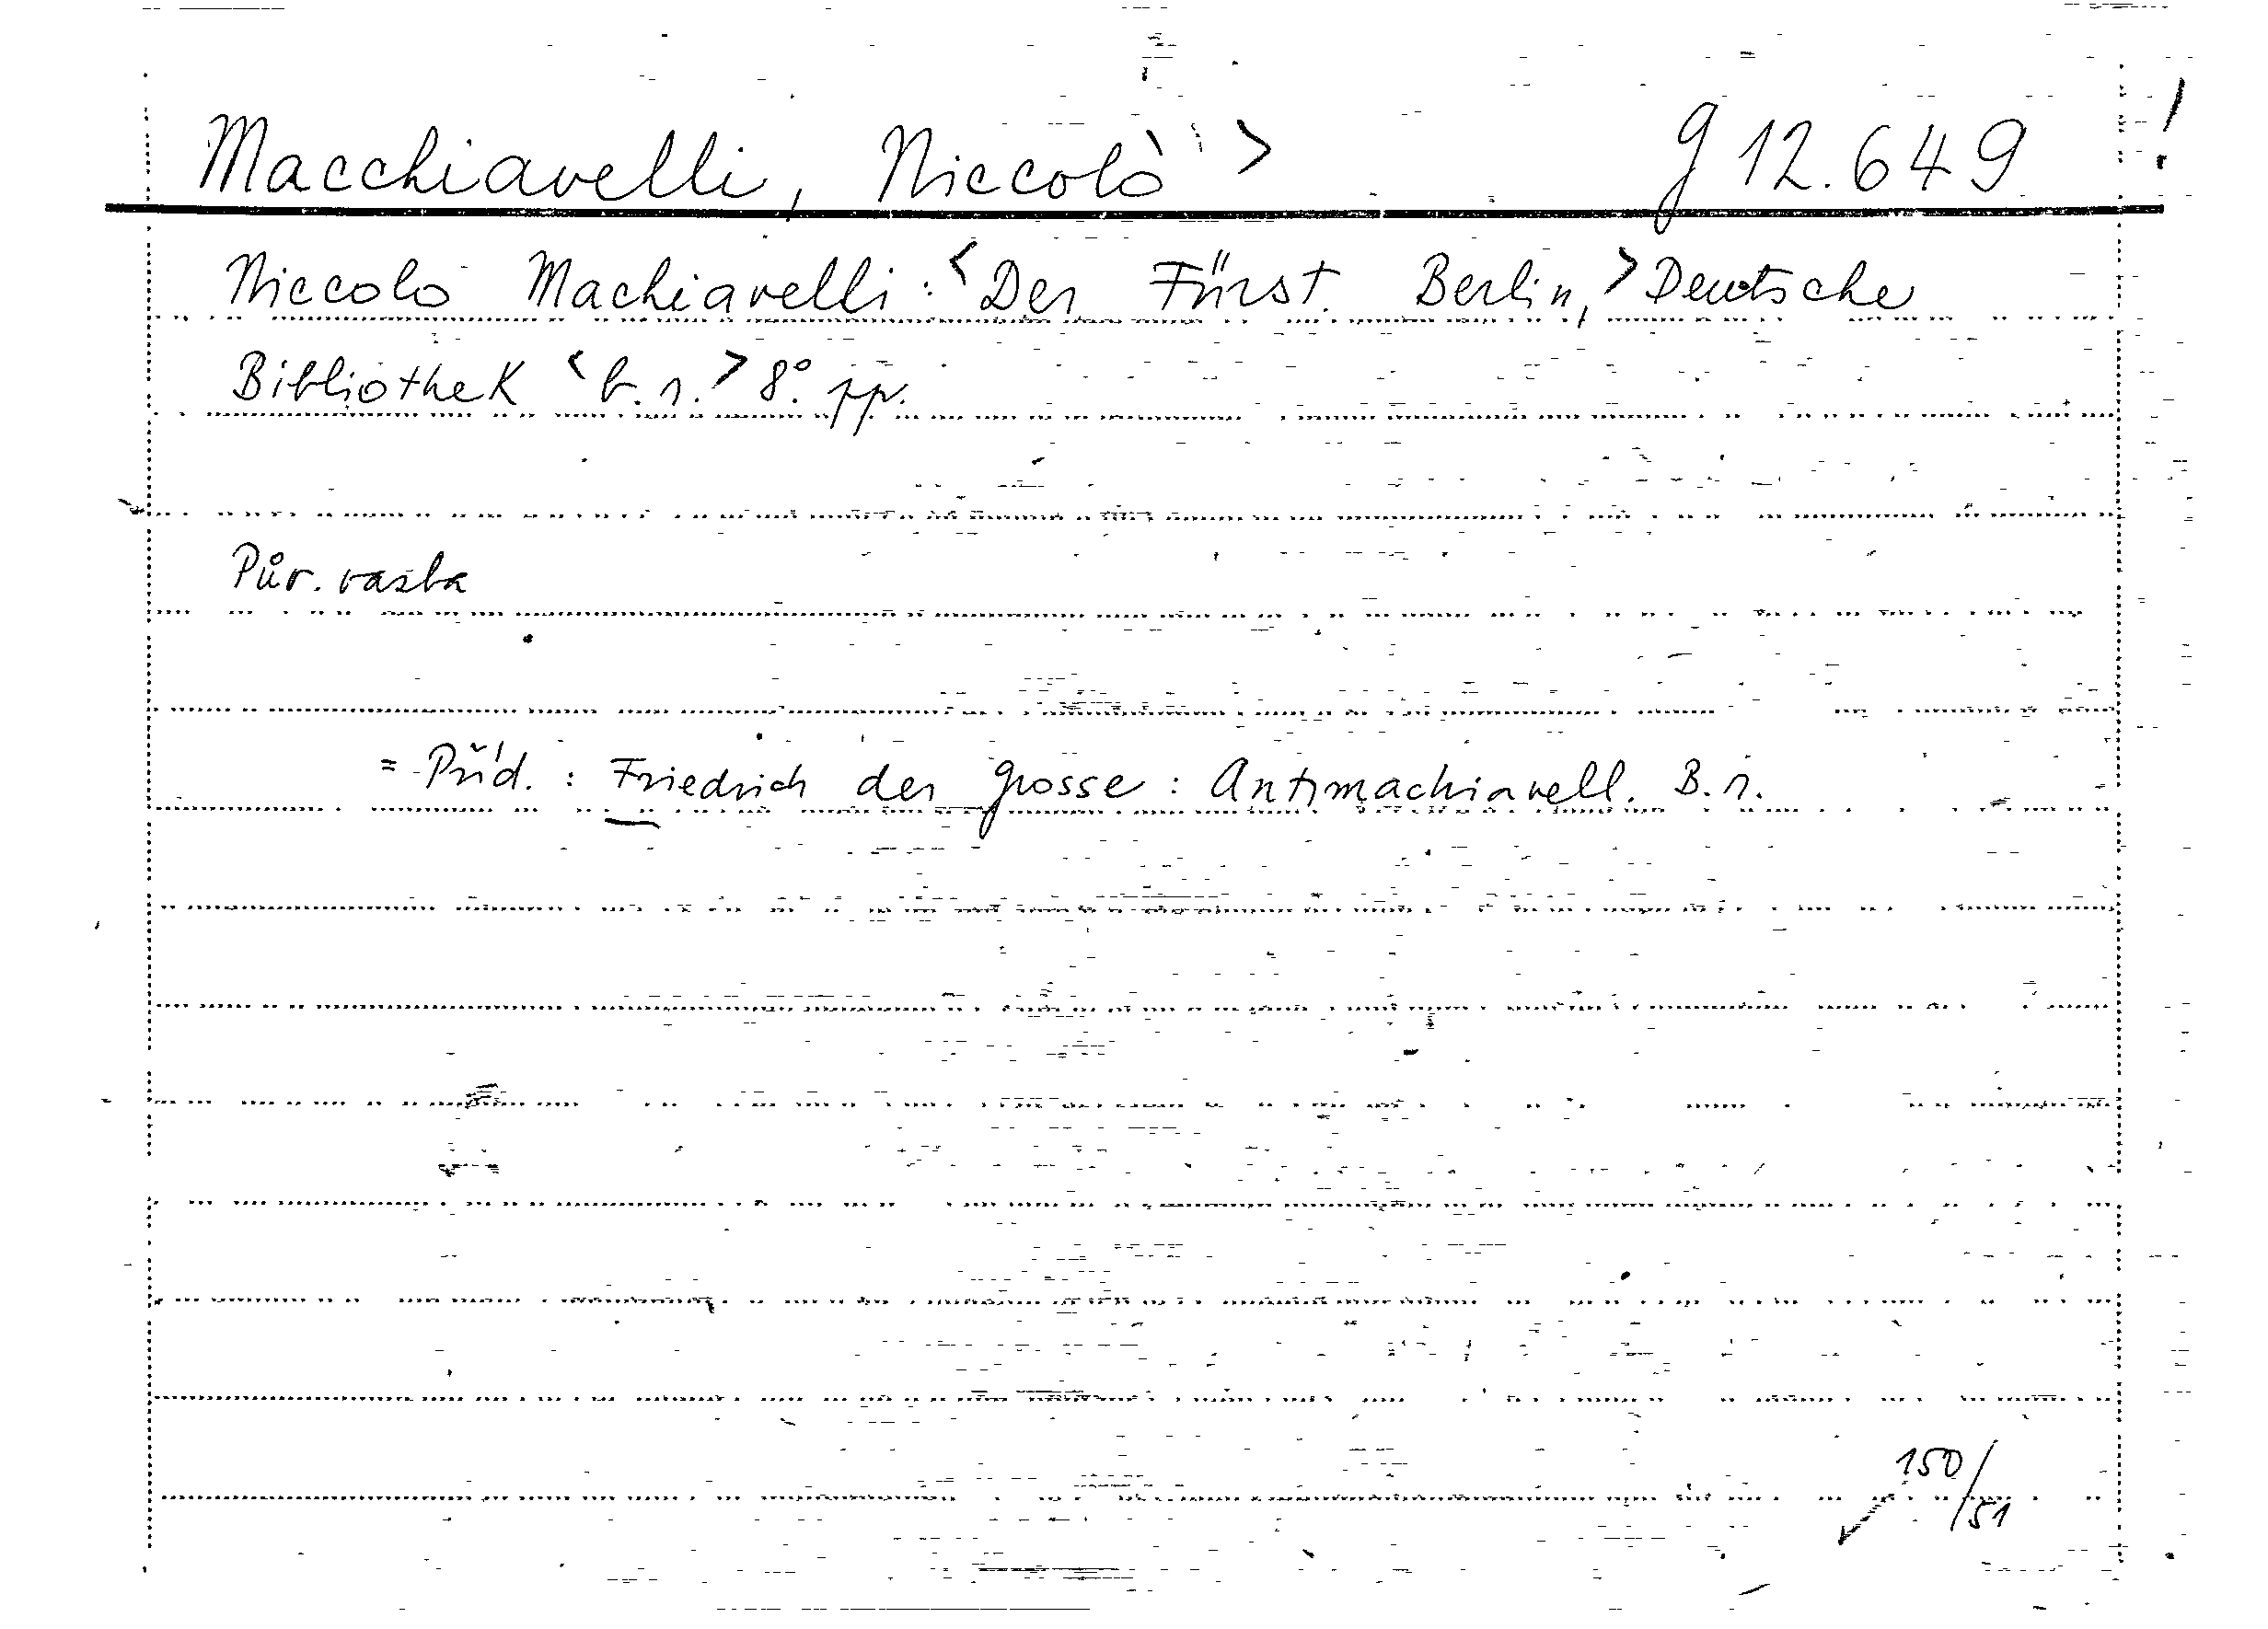 Macchiavelli, Niccolò > g 12.649 !
Niccolo Machiavelli: <Der Fürst. Berlin,> Deutsche
Bibliothek <b.r.> 8°. pp.
Pův. vazba
= Příd.: Friedrich der Grosse: Antimachiavell. B.r.
150/51